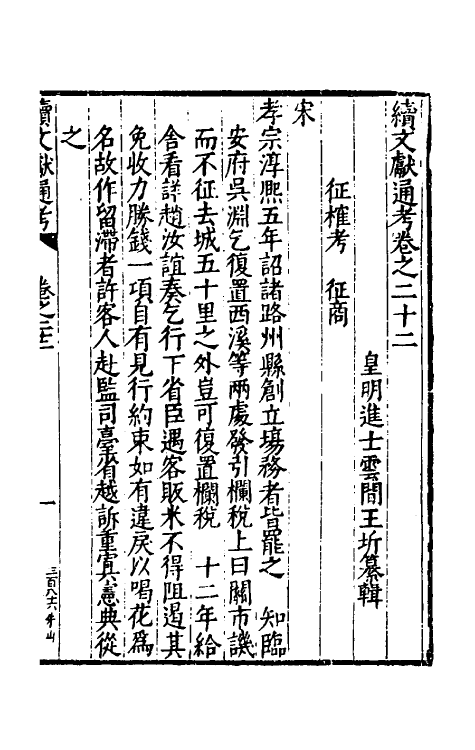 續文獻通考卷之二十二
皇明進士雲間王圻纂輯
征榷考　征商
宋
孝宗淳熙五年詔諸路州縣創立場務者皆罷之　知臨
安府吳淵乞復置西溪等兩處發引欄稅上曰關市譏
而不征去城五十里之外豈可復置欄稅　十二年給
舍看詳趙汝誼奏乞行下省臣遇客販米不得阻遏其
免收力勝錢一項自有見行約束如有違戾以喝花為
名故作留滯者許客人赴監司臺省越訴重寘憲典從
之
續文獻通考
卷之二十二
一
三百八十六